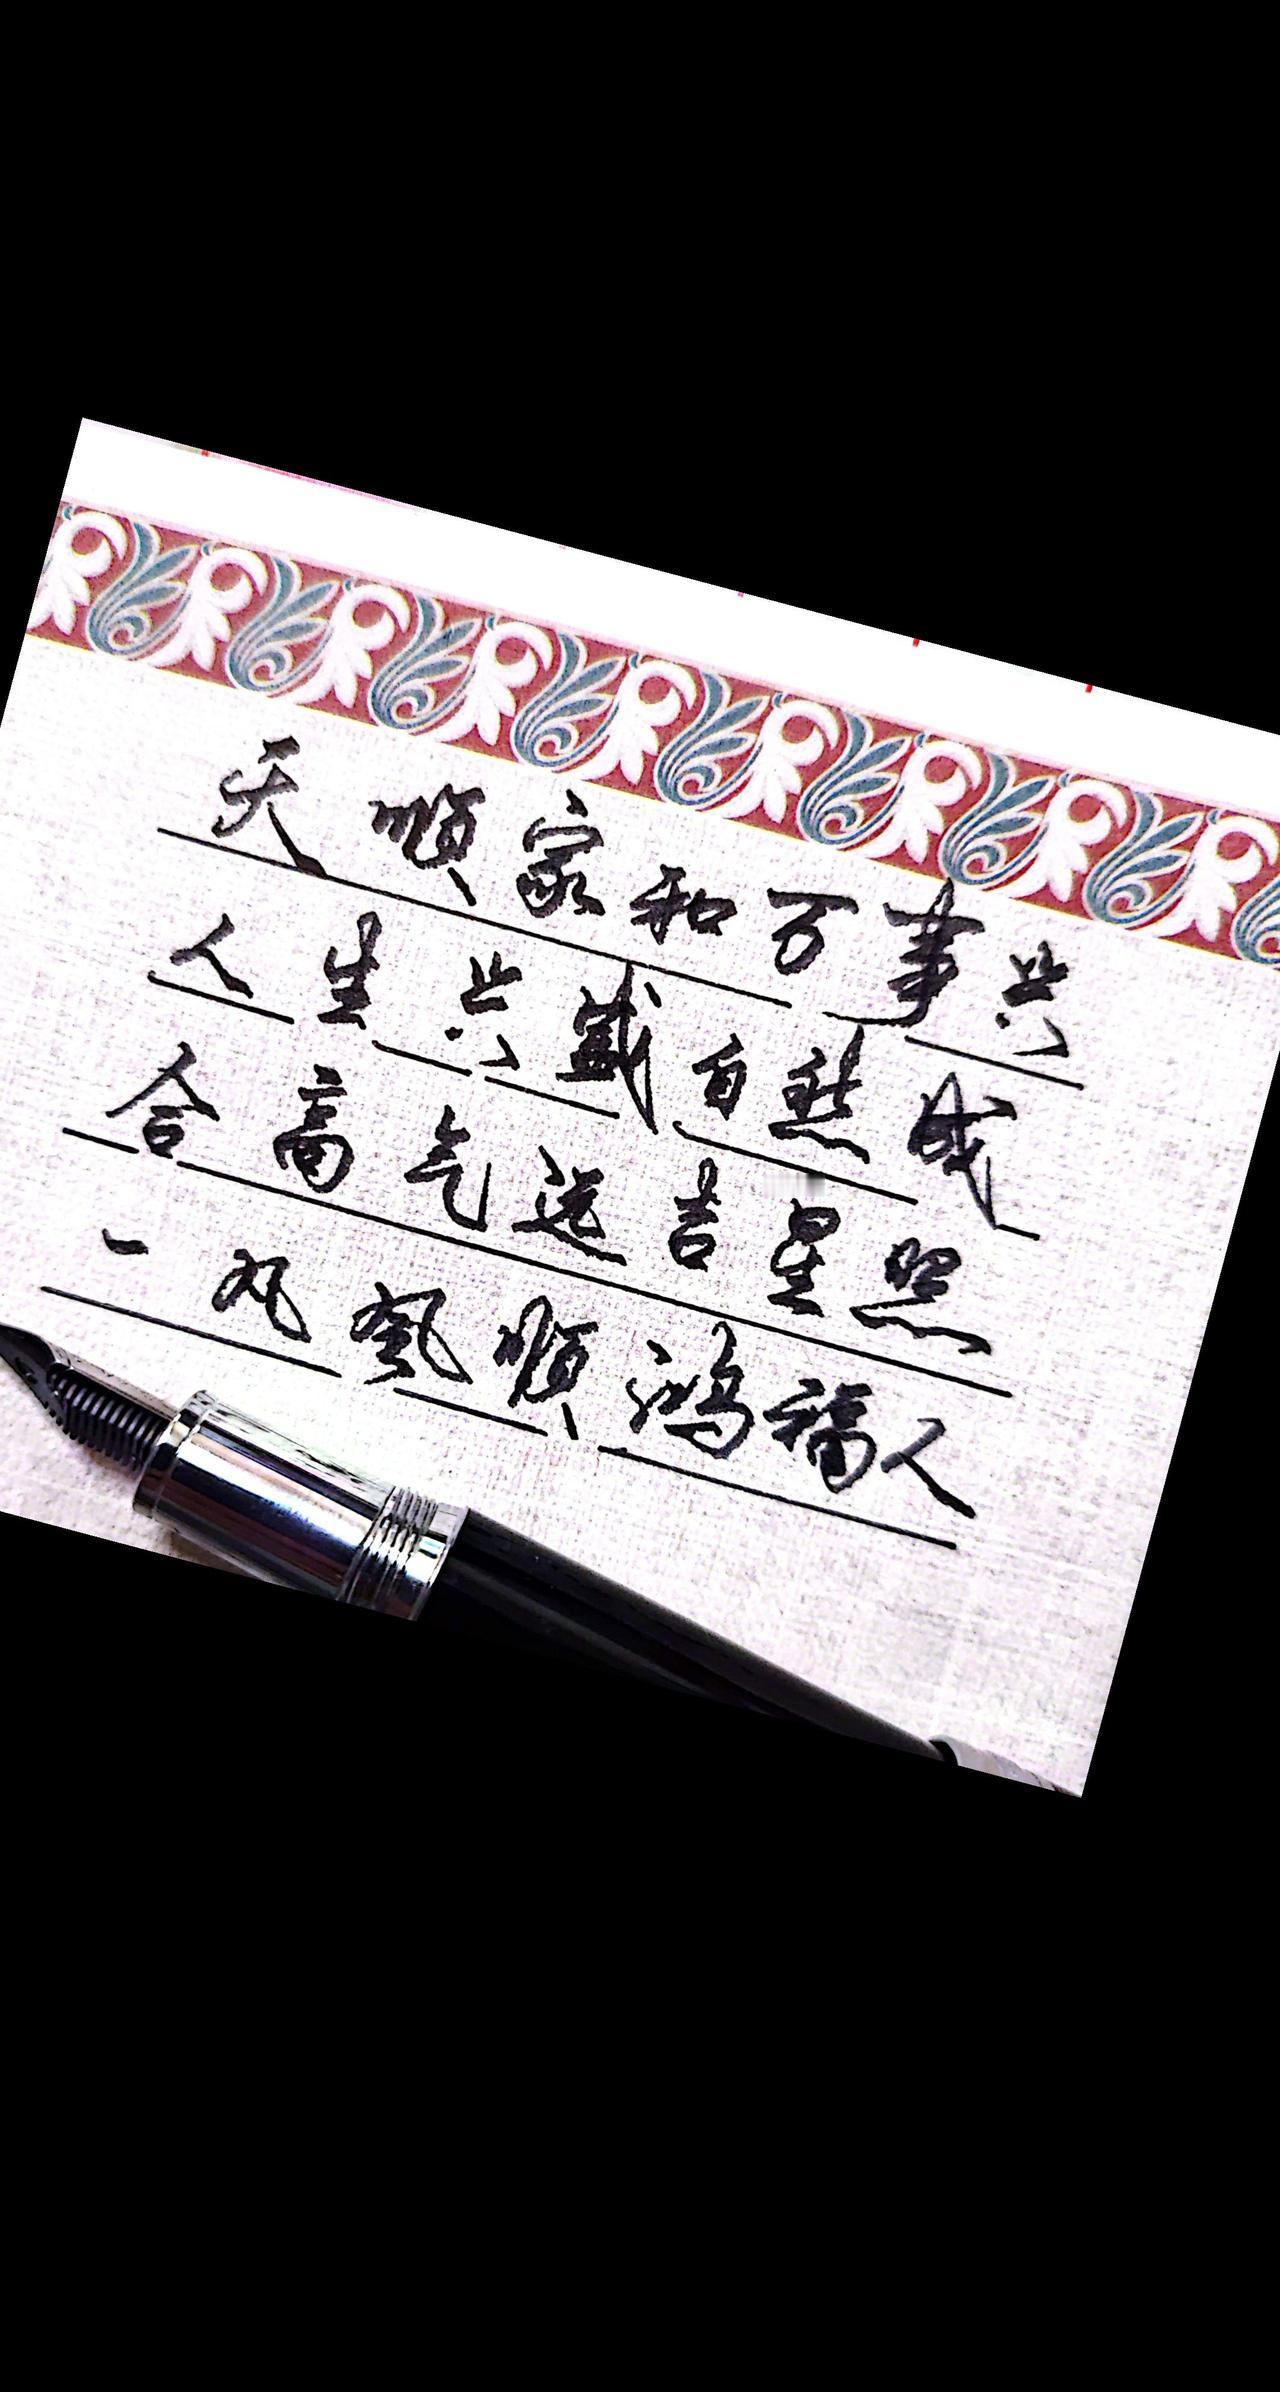 天顺家和万事兴
人生兴盛自然成
合高气远吉星照
一帆风顺鸿福人